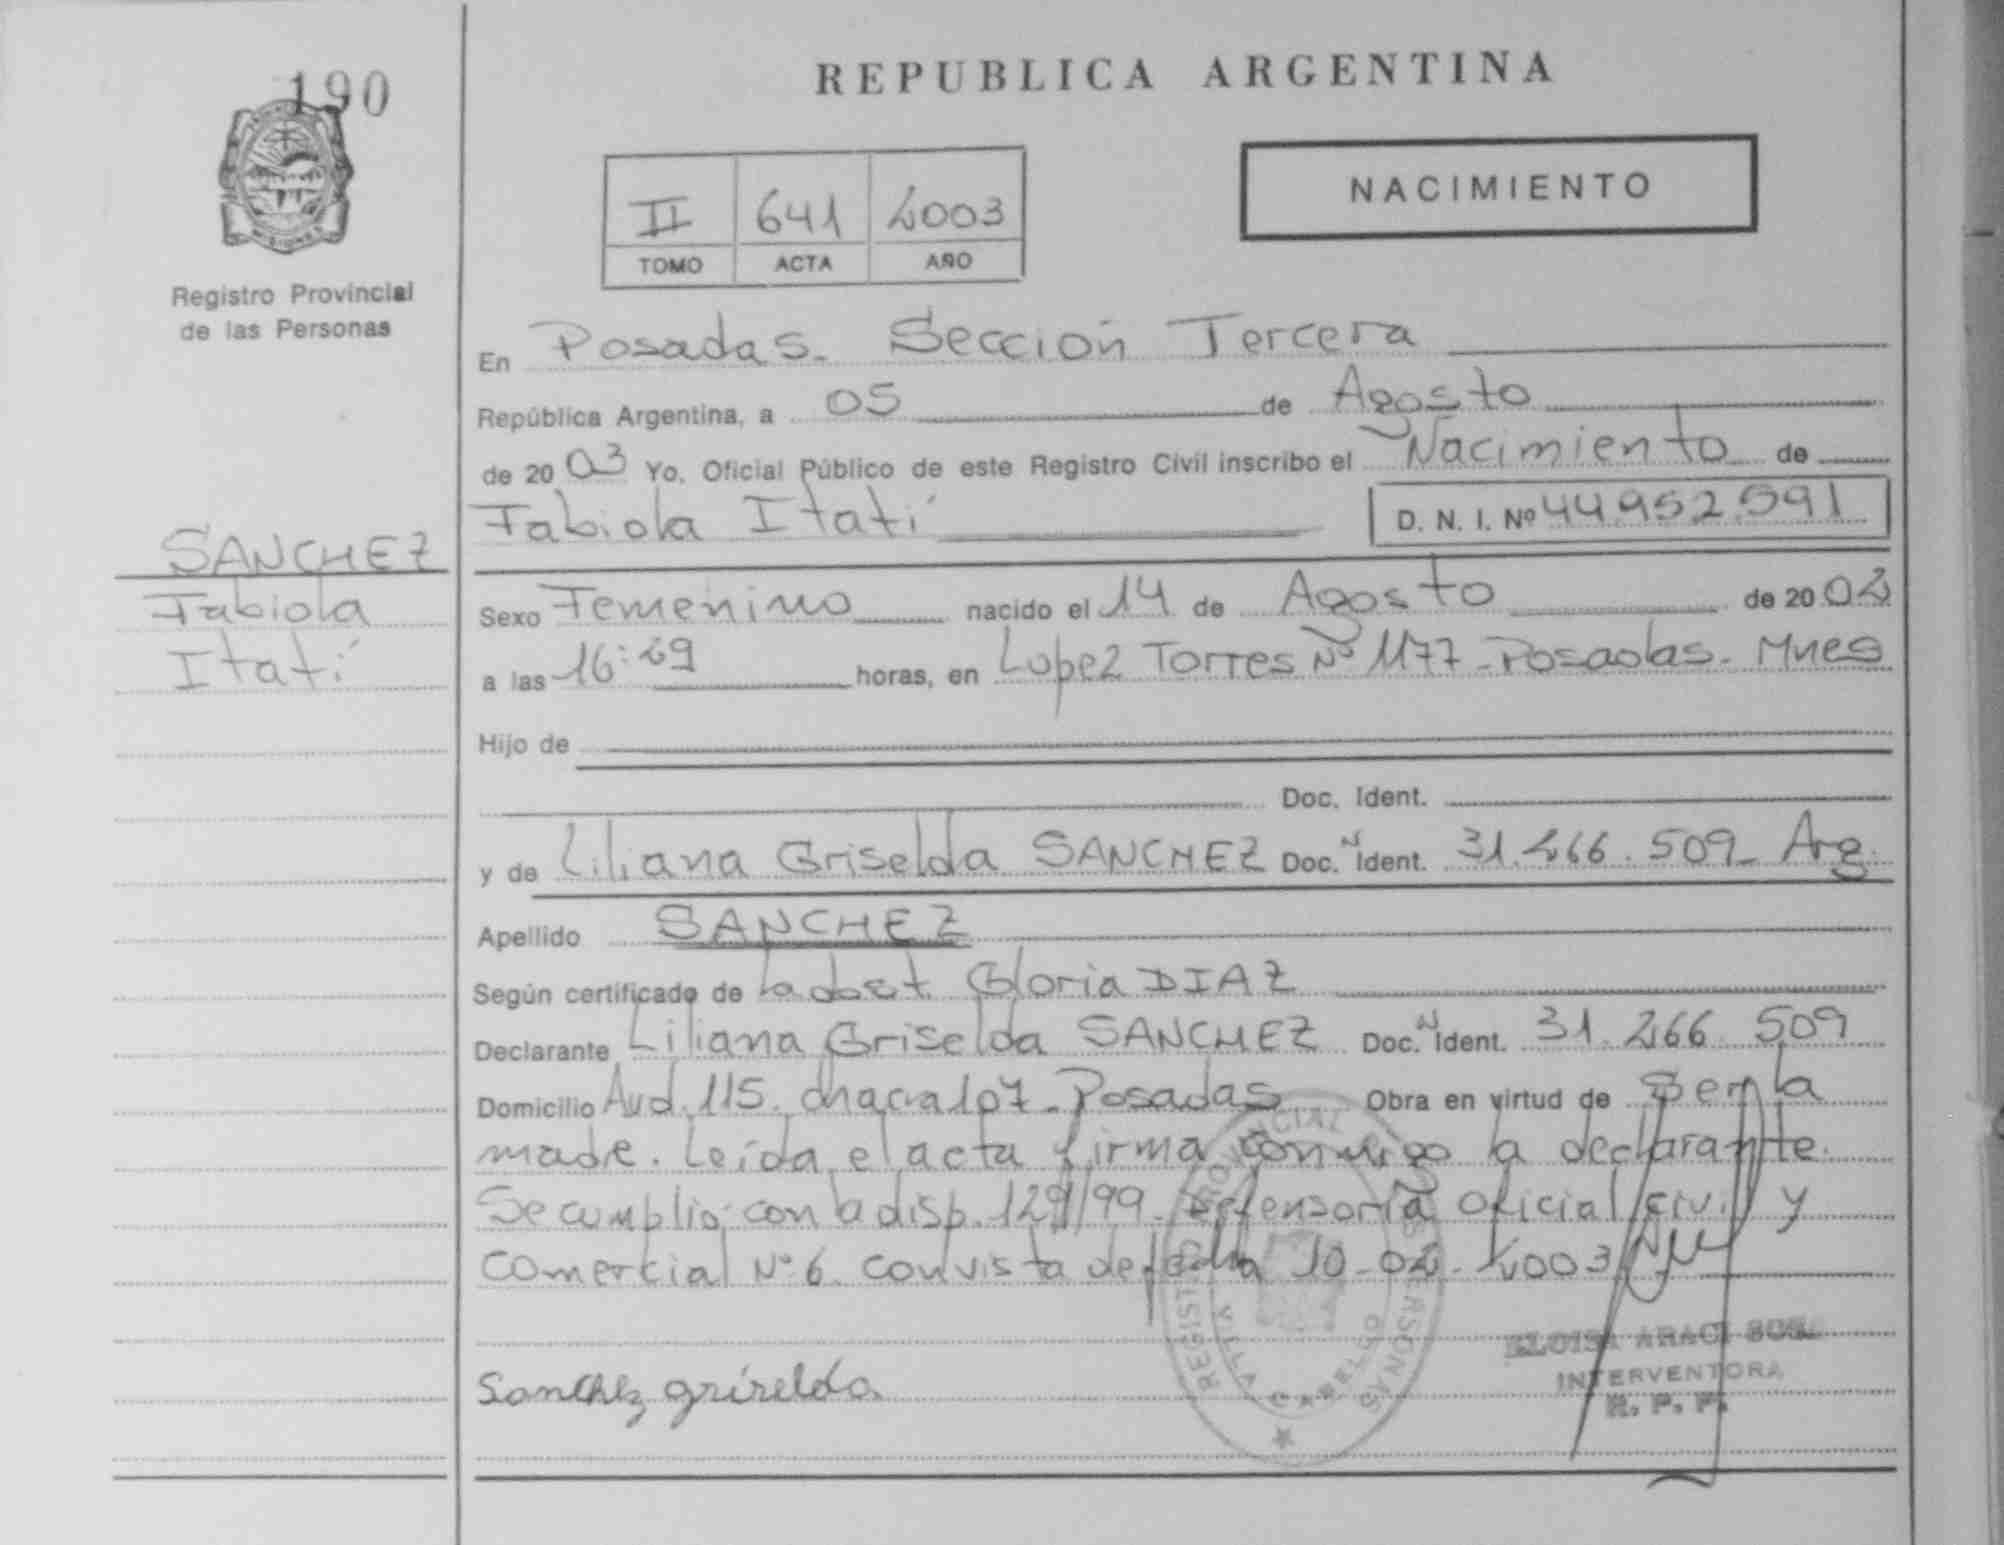 190
MISIONES
Registro Provincial
de las Personas
REPUBLICA ARGENTINA
II 641 2003
TOMO ACTA AÑO
NACIMIENTO
En Posadas. Sección Tercera
República Argentina, a 05 de Agosto
de 20 03 Yo. Oficial Público de este Registro Civil inscribo el Nacimiento de
Fabiola Itatí D. N. I. Nº 44.952.591
SANCHEZ
Fabiola
Itatí
Sexo Femenino nacido el 14 de Agosto de 20 02
a las 16:29 horas, en Lopez Torres Nº 1177 - Posadas - Mnes
Hijo de
Doc. Ident.
y de Liliana Griselda SANCHEZ Doc. N Ident. 31.266.509 - Arg.
Apellido SANCHEZ
Según certificado de la obst. Gloria DIAZ
Declarante Liliana Griselda SANCHEZ Doc. N Ident. 31.266.509
Domicilio Avd. 115. chacra 107 - Posadas Obra en virtud de Ser la
madre. Leída el acta firma conmigo la declarante.
Se cumplió con la disp. 129/99. Defensoría Oficial Civil y
Comercial Nº 6. con vista de fecha 10-02-2003
REGISTRO PROVINCIAL PERSONAS
VILLA CABELLO
ELOISA ARACI SOSA
INTERVENTORA
R. P. P.
Sanchez griselda